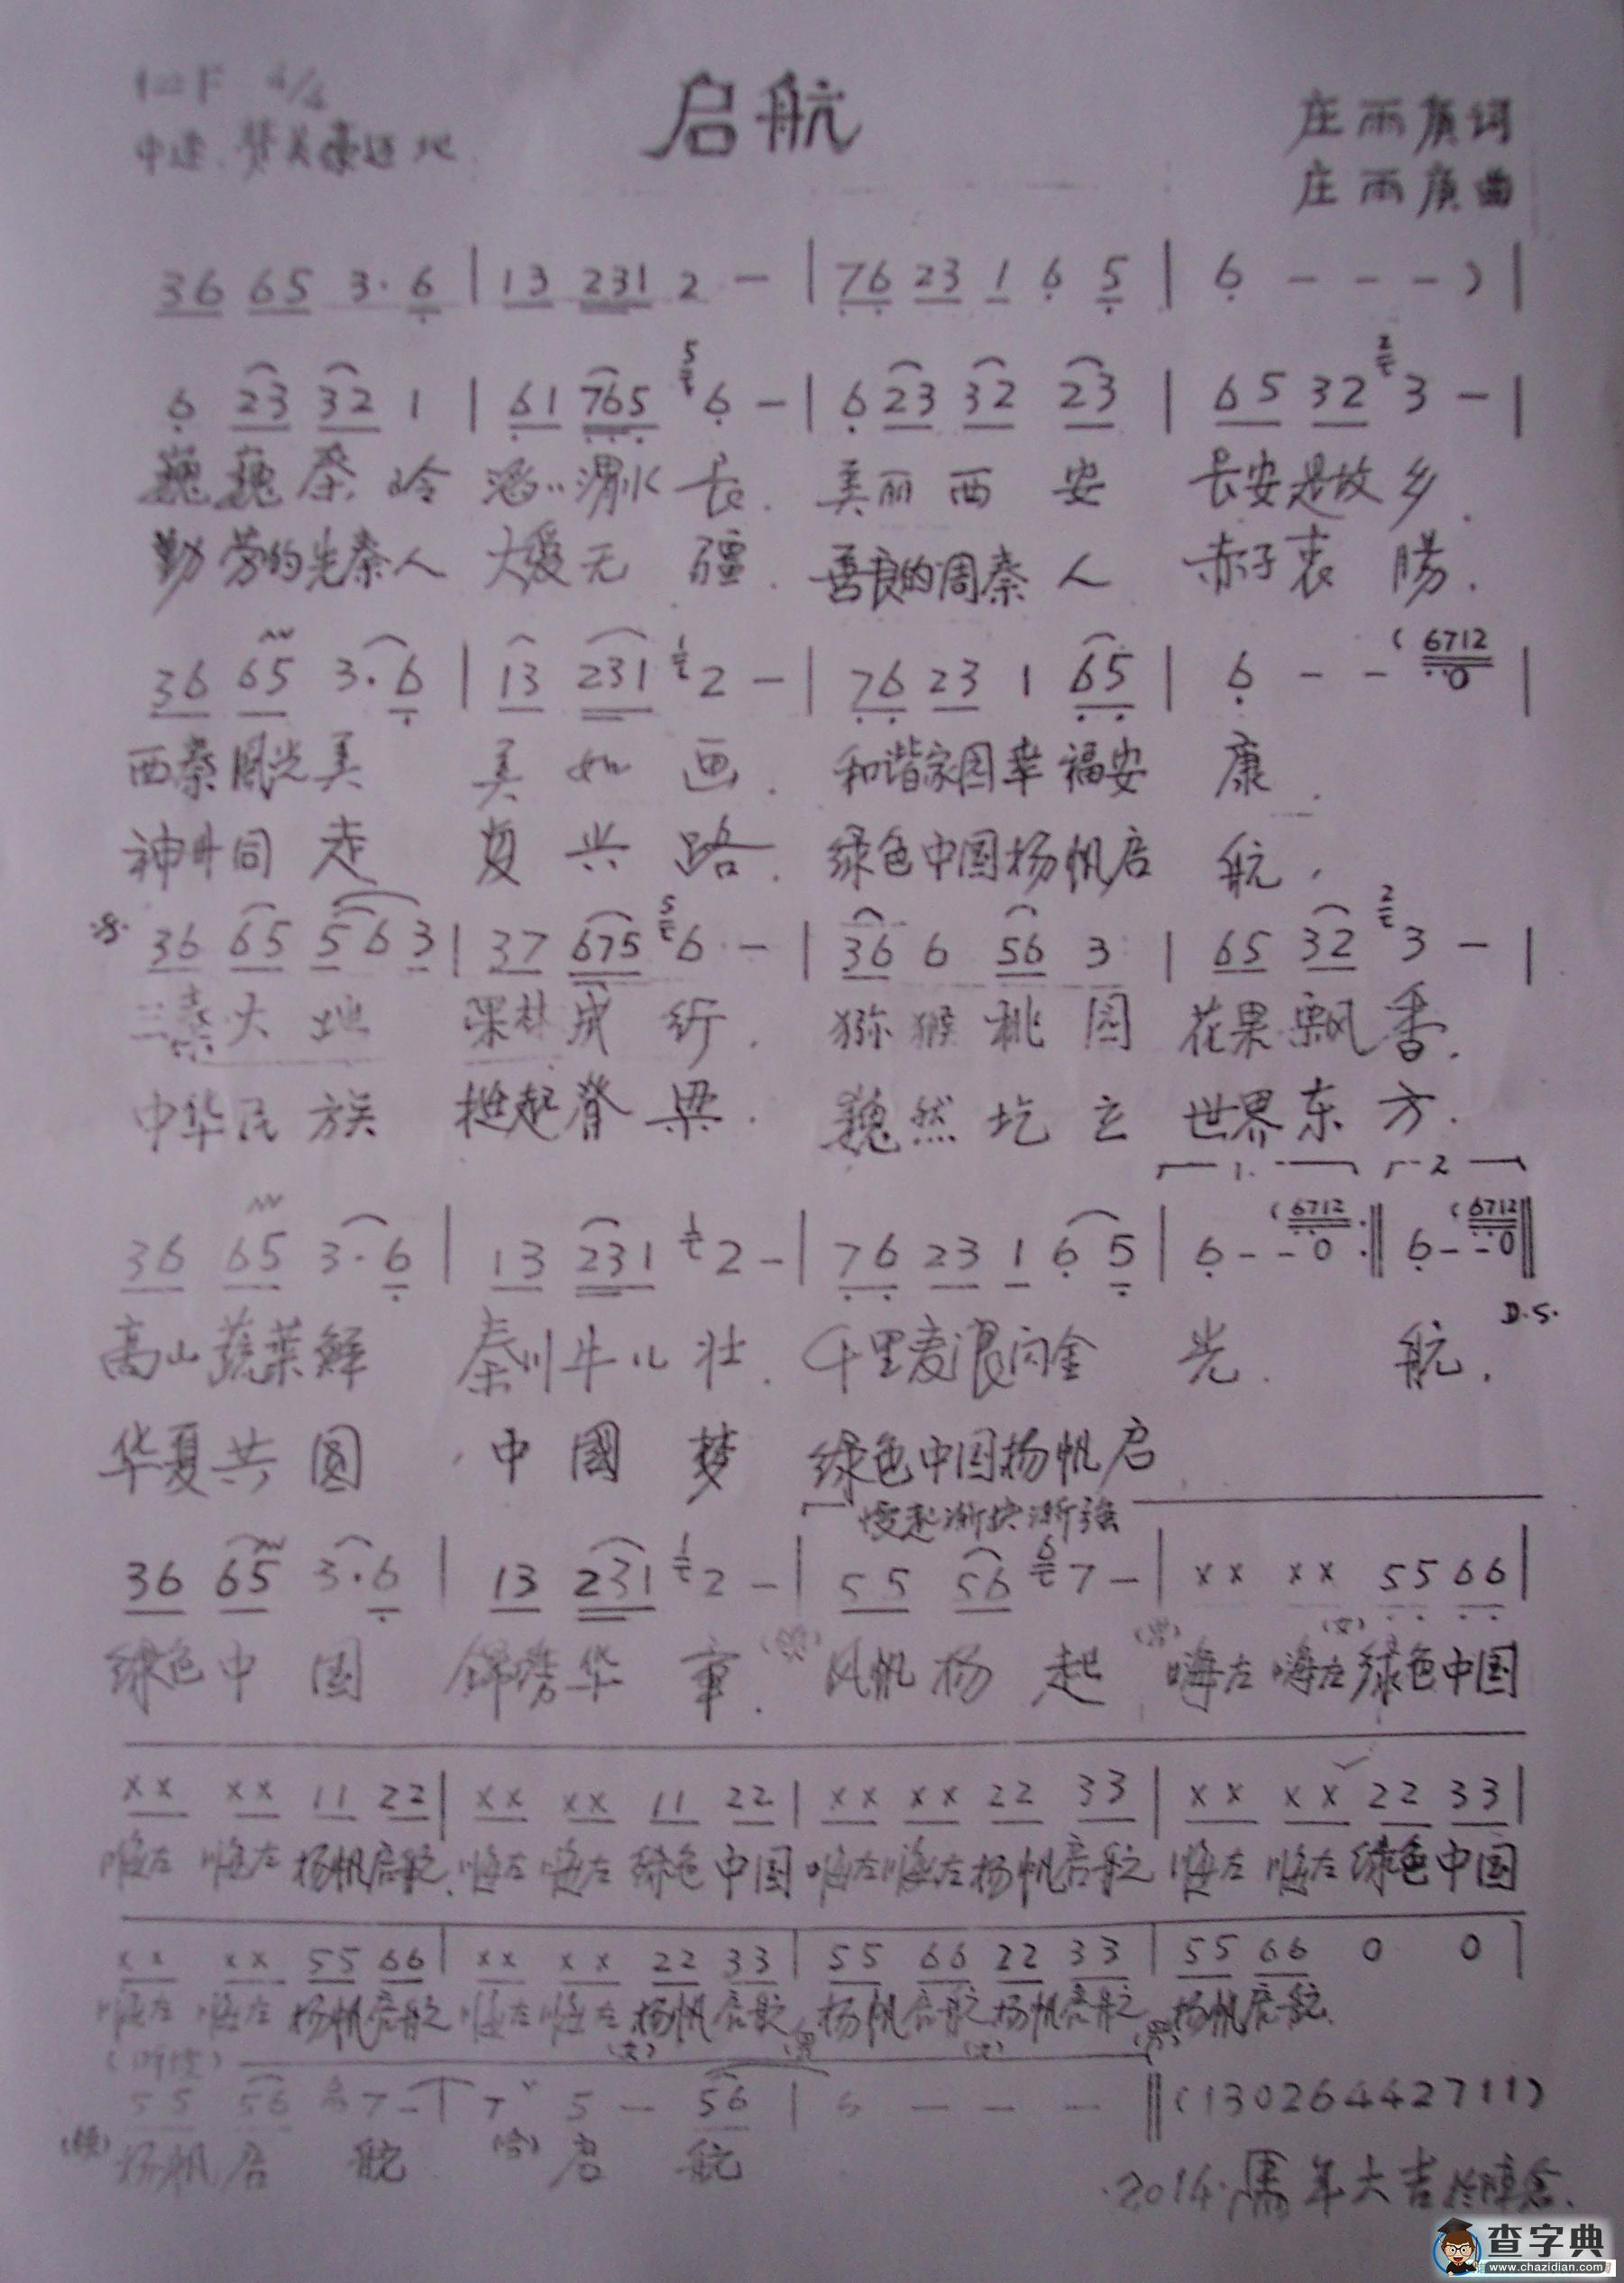 启航
1=F 4/4
中速 赞美豪迈地
庄雨广词
庄雨广曲
36 65 3·6 | 13 231 2 — | 76 23 1 6 5 | 6 — — — ) |
6 23 32 1 | 61 765 6 — | 6 23 32 23 | 65 32 3 — |
巍巍秦岭 滔滔渭水长. 美丽西安 长安是故乡.
勤劳的先秦人 大爱无疆. 善良的周秦人 赤子衷肠.
36 65 3·6 | 13 231 2 — | 76 23 1 65 | 6 — — (6712 0 |
西秦风光美 美如画. 和谐家园幸福安康.
神州同走 复兴路. 绿色中国扬帆启航.
36 65 5 6 3 | 37 675 6 — | 36 6 56 3 | 65 32 3 — |
三秦大地 果林成行. 猕猴桃园 花果飘香.
中华民族 挺起脊梁. 巍然屹立 世界东方.
1. 2
36 65 3·6 | 13 231 2 — | 76 23 1 6 5 | 6 — — (6712 0 :‖ 6 — — (6712 0 ‖
D.S.
高山蔬菜鲜 秦川牛儿壮. 千里麦浪闪金光. 航.
华夏共圆 中國梦 绿色中国扬帆启
慢起渐快渐強
36 65 3·6 | 13 231 2 — | 55 56 7 — | xx xx 55 66 |
绿色中国 锦绣华章. 风帆扬起 嗨左 嗨左 绿色中国
xx xx 11 22 | xx xx 11 22 | xx xx 22 33 | xx xx 22 33 |
嗨左 嗨左 扬帆启航. 嗨左 嗨左 绿色中国 嗨左 嗨左 扬帆启航 嗨左 嗨左 绿色中国
xx xx 55 66 | xx xx 22 33 | 55 66 22 33 | 55 66 0 0 |
嗨左 嗨左 扬帆启航 嗨左 嗨左 扬帆启航 扬帆启航 扬帆启航 扬帆启航.
55 56 7 — | 7 5 — 56 | 6 — — — ‖ (13026442711)
扬帆启航 (合) 启航
2014·馬年大吉
查字典
www.chazidian.com